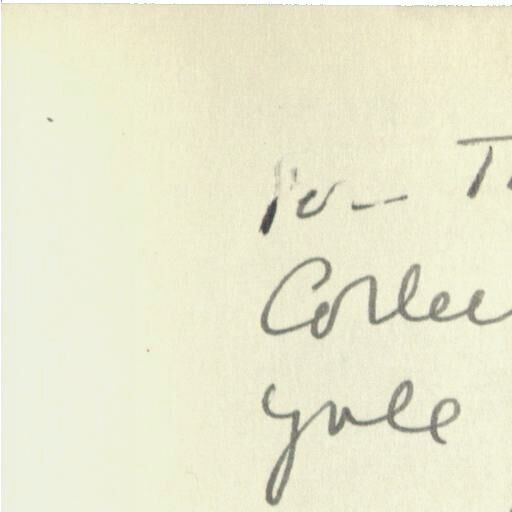 To – T
Collec
Yale